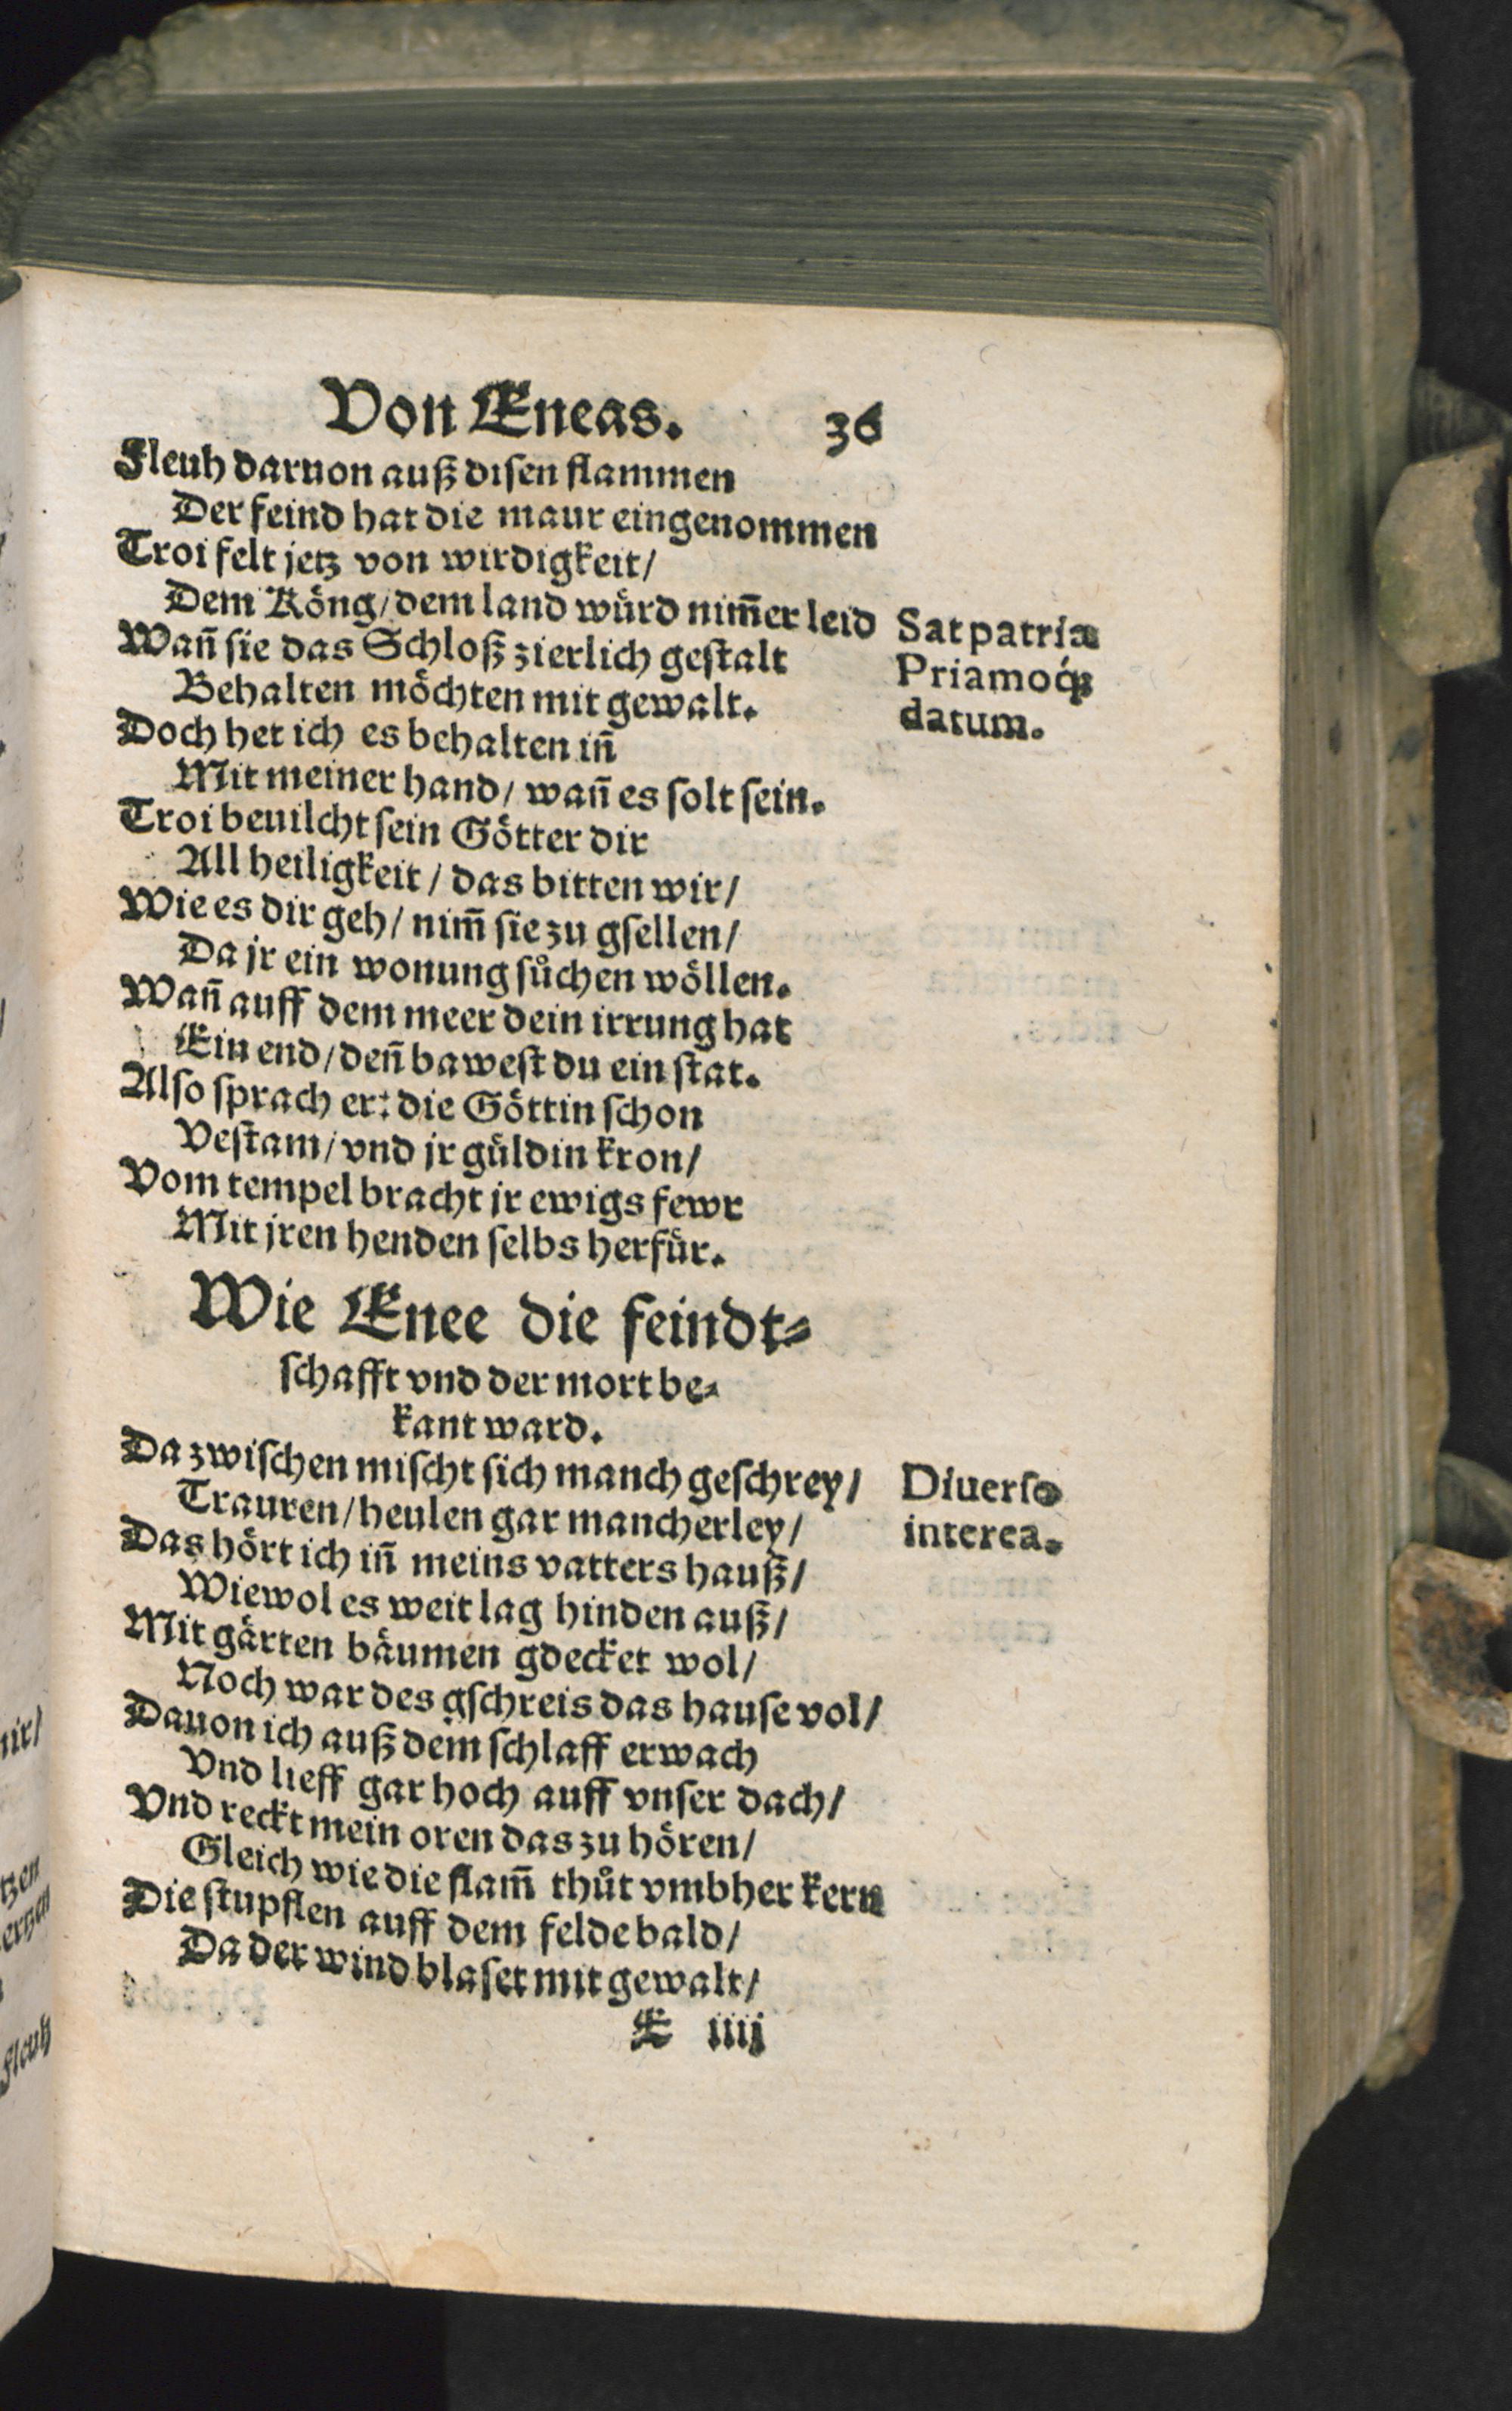 Von Eneas. 36
Fleuh daruon auß disen flammen
Der feind hat die maur eingenommen
Troi felt jetz von wirdigkeit/
Dem Köng/ dem land würd nim̃er leid
Wañ sie das Schloß zierlich gestalt
Behalten möchten mit gewalt.
Sat patriæ
Priamoq́;
datum.
Doch het ich es behalten iñ
Mit meiner hand/ wañ es solt sein.
Troi beuilcht sein Götter dir
All heiligkeit/ das bitten wir/
Wie es dir geh/ nim̃ sie zu gsellen/
Da jr ein wonung sůchen wöllen.
Wañ auff dem meer dein irrung hat
Ein end/ deñ bawest du ein stat.
Also sprach er: die Göttin schon
Vestam/ vnd jr güldin kron/
Vom tempel bracht jr ewigs fewr
Mit jren henden selbs herfür.
Wie Enee die feindt⸗
schafft vnd der mort be⸗
kant ward.
Da zwischen mischt sich manch geschrey/
Trauren/ heulen gar mancherley/
Diuerso
interea.
Das hört ich iñ meins vatters hauß/
Wiewol es weit lag hinden auß/
Mit gärten bäumen gdecket wol/
Noch war des gschreis das hause vol/
Dauon ich auß dem schlaff erwach
Vnd lieff gar hoch auff vnser dach/
Vnd reckt mein oren das zu hören/
Gleich wie die flam̃ thůt vmbher kern
Die stupflen auff dem felde bald/
Da der wind blaset mit gewalt/
E iiij